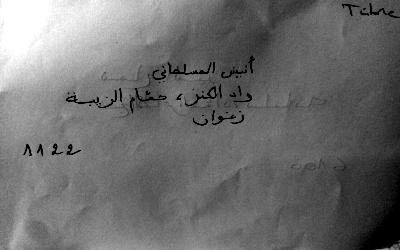 أنيس المسلماني
واد الكنز، حمام الزريبة
زغوان
1122